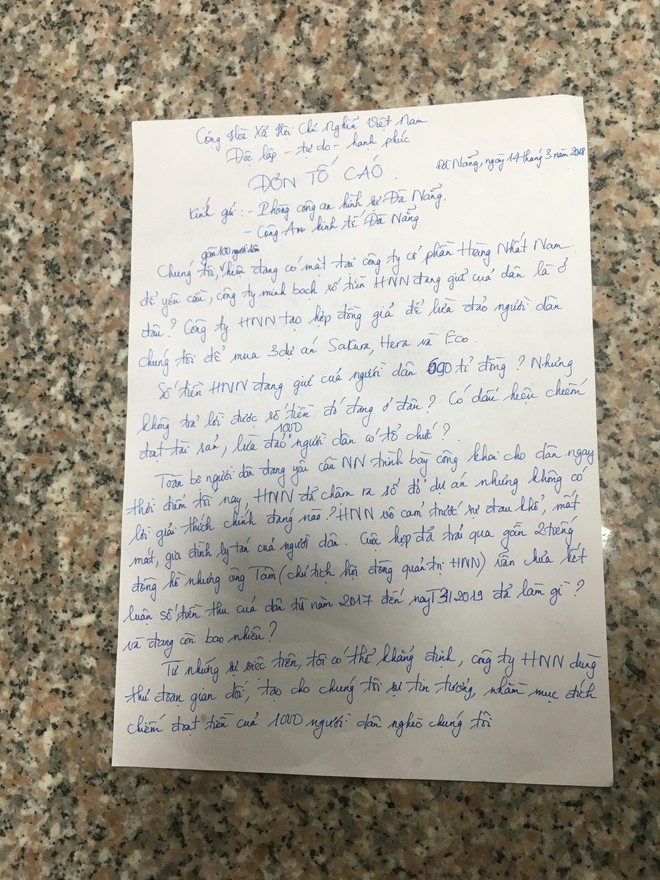 Cộng Hòa Xã Hội Chủ Nghĩa Việt Nam
Độc lập - tự do - hạnh phúc
Đà Nẵng, ngày 14 tháng 3 năm 2018
ĐƠN TỐ CÁO
Kính gửi: - Phòng công an hình sự Đà Nẵng.
- Công An kinh tế Đà Nẵng
gần 100 người dân
Chúng tôi, hiện đang có mặt tại công ty cổ phần Hoàng Nhất Nam
để yêu cầu, công ty minh bạch số tiền HNN đang giữ của dân là ở
đâu? Công ty HNN tạo hợp đồng giả để lừa đảo người dân
chúng tôi để mua 3 dự án Sakura, Hera và Eco.
Số tiền HNN đang giữ của người dân 690 tỉ đồng? Nhưng
không trả lời được số tiền đó đang ở đâu? Có dấu hiệu chiếm
đoạt tài sản, lừa đảo 1000 người dân có tổ chức?
Toàn bộ người dân đang yêu cầu NN trình bày công khai cho dân ngay
thời điểm tối nay. HNN đã chậm ra sổ đỏ dự án nhưng không có
lời giải thích chính đáng nào? HNN vô cảm trước sự đau khổ, mất
mát, gia đình ly tán của người dân. Cuộc họp đã trải qua gần 2 tiếng
đồng hồ nhưng ông Tâm (chủ tịch hội đồng quản trị HNN) vẫn chưa kết
luận số tiền thu của dân từ năm 2017 đến nay T3/2019 đã làm gì?
và đang còn bao nhiêu?
Từ những sự việc trên, tôi có thể khẳng định, công ty HNN dùng
thủ đoạn gian dối, tạo cho chúng tôi sự tin tưởng, nhằm mục đích
chiếm đoạt tiền của 1000 người dân nghèo chúng tôi